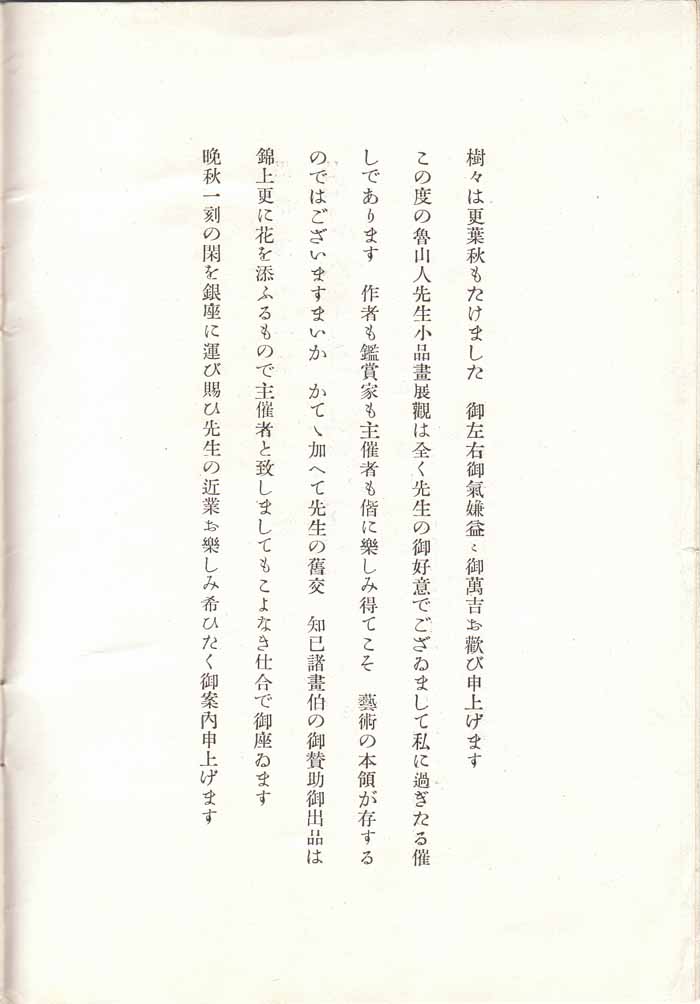 樹々は更葉秋もたけました　御左右御氣嫌益〻御萬吉お歡び申上げます
この度の魯山人先生小品畫展觀は全く先生の御好意でござゐまして私に過ぎたる催
しであります　作者も鑑賞家も主催者も偕に樂しみ得てこそ　藝術の本領が存する
のではございますまいか　かて〵加へて先生の舊交　知已諸畫伯の御賛助御出品は
錦上更に花を添ふるもので主催者と致しましてもこよなき仕合で御座ゐます
晩秋一刻の閑を銀座に運び賜ひ先生の近業お樂しみ希ひたく御案內申上げます